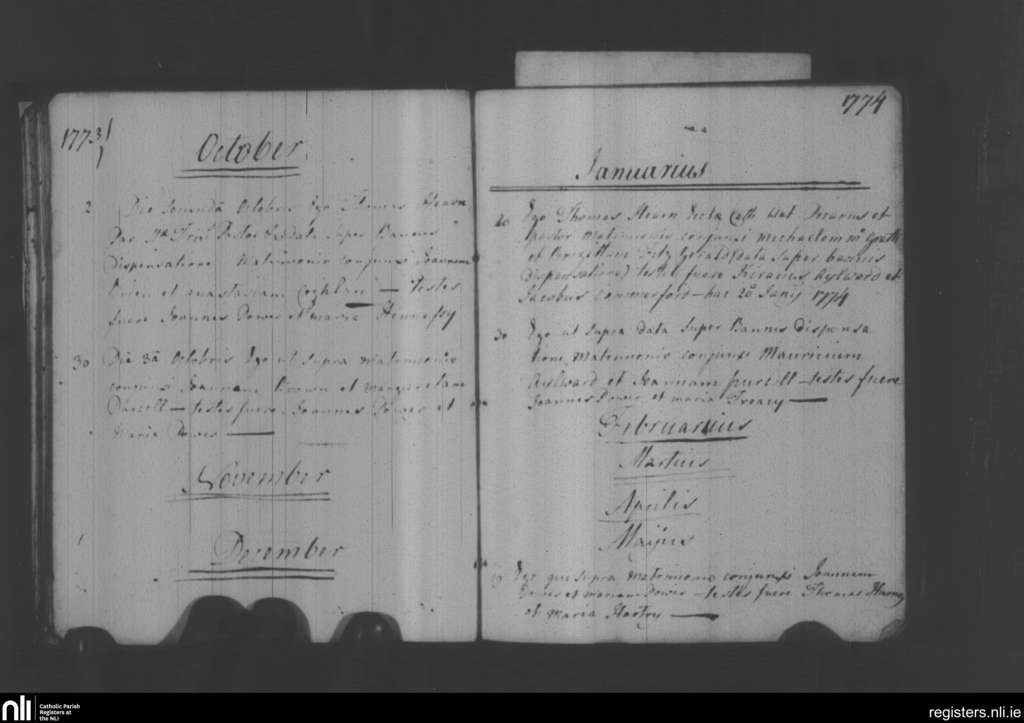 1773
October
2 Die Secunda Octobris Ego Thomas Hearn
Par Pastor data Super Bannis
Dispensatione Matrimonio conjunxi Joannem
et anastasiam Coghlan — testes
fuere Joannes Power et maria Hennessy
30 Die 3a Octobris Ego ut Supra Matrimonio
conjunxi Joannem Brown et margaretam
— testes fuere Joannes Power et
Maria Power —
November
December
1774
Januarius
20 Ego Thomas Hearn Vicarius et
pastor Matrimonio conjunxi Michaelem
et Fitz Gerald (data Super bannis
Dispensatione) testes fuere Kiranus Aylward et
Jacobus Commerford — hac 20 Janij 1774
30 Ego ut Supra data Super Bannis dispensa
tione Matrimonio conjunxi Mauricium
Aylward et Joannam purcell — testes fuere
Joannes Power et maria Treacy —
Februarius
Martius
Aprilis
Maijus
Ego qui supra Matrimonio conjunxi Joannem
Power et mariam Power — testes fuere Thomas
et Maria Hartry —
nli Catholic Parish
Registers at
the NLI
registers.nli.ie